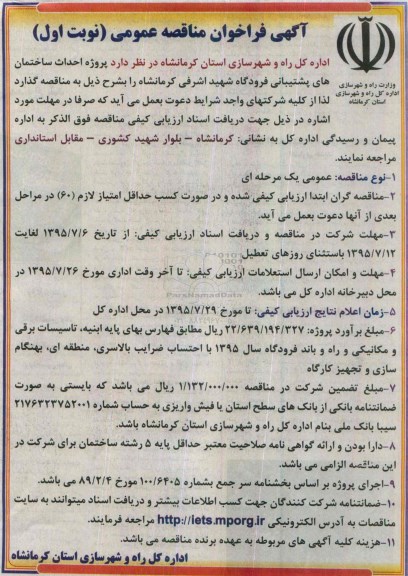 آگهی فراخوان مناقصه عمومی (نوبت اول)
وزارت راه و شهرسازی
اداره کل راه و شهرسازی
استان کرمانشاه
اداره کل راه و شهرسازی استان کرمانشاه در نظر دارد پروژه احداث ساختمان
های پشتیبانی فرودگاه شهید اشرفی کرمانشاه را بشرح ذیل به مناقصه گذارد
لذا از کلیه شرکتهای واجد شرایط دعوت بعمل می آید که صرفا در مهلت مورد
اشاره در ذیل جهت دریافت اسناد ارزیابی کیفی مناقصه فوق الذکر به اداره
پیمان و رسیدگی اداره کل به نشانی: کرمانشاه – بلوار شهید کشوری – مقابل استانداری
مراجعه نمایند.
۱-نوع مناقصه: عمومی یک مرحله ای
۲-مناقصه گران ابتدا ارزیابی کیفی شده و در صورت کسب حداقل امتیاز لازم (۶۰) در مراحل
بعدی از آنها دعوت بعمل می آید.
۳-مهلت شرکت در مناقصه و دریافت اسناد ارزیابی کیفی: از تاریخ ۱۳۹۵/۷/۶ لغایت
۱۳۹۵/۷/۱۲ باستثنای روزهای تعطیل
۴-مهلت و امکان ارسال استعلامات ارزیابی کیفی: تا آخر وقت اداری مورخ ۱۳۹۵/۷/۲۶ در
محل دبیرخانه اداره کل می باشد.
ParsNamadData
۵-زمان اعلام نتایج ارزیابی کیفی: تا مورخ ۱۳۹۵/۷/۲۹ در محل اداره کل
۶-مبلغ برآورد پروژه: ۲۲/۶۳۹/۱۹۴/۳۲۷ ریال مطابق فهارس بهای پایه ابنیه، تاسیسات برقی
و مکانیکی و راه و باند فرودگاه سال ۱۳۹۵ با احتساب ضرایب بالاسری، منطقه ای، بهنگام
سازی و تجهیز کارگاه
۷-مبلغ تضمین شرکت در مناقصه ۱/۱۳۲/۰۰۰/۰۰۰ ریال می باشد که بایستی به صورت
ضمانتنامه بانکی از بانک های سطح استان یا فیش واریزی به حساب شماره ۲۱۷۶۳۲۳۷۵۲۰۰۱
سیبا بانک ملی بنام اداره کل راه و شهرسازی استان کرمانشاه باشد.
۸-دارا بودن و ارائه گواهی نامه صلاحیت معتبر حداقل پایه ۵ رشته ساختمان برای شرکت در
این مناقصه الزامی می باشد.
۹-اجرای پروژه بر اساس بخشنامه سر جمع بشماره ۱۰۰/۶۴۰۵ مورخ ۸۹/۲/۴ می باشد.
۱۰-ضمانتنامه شرکت کنندگان جهت کسب اطلاعات بیشتر و دریافت اسناد میتوانند به سایت
مناقصات به آدرس الکترونیکی http://iets.mporg.ir مراجعه فرمایند.
۱۱-هزینه کلیه آگهی های مربوطه به عهده برنده مناقصه می باشد.
اداره کل راه و شهرسازی استان کرمانشاه